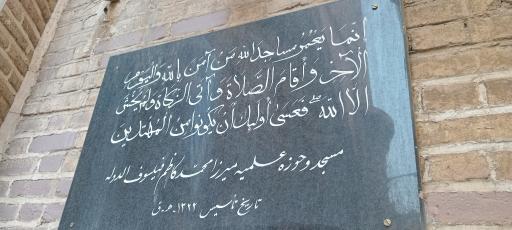 انّما يَعْمُرُ مساجدَ الله مَنْ آمن بِاللهِ وَاليَومِ
الآخر وَأقامَ الصَّلاةَ وَآتَى الزَّكاةَ وَلَم يَخْشَ
الّا اللهَ فَعَسىٰ أولٰئِكَ أن يَكُونُوا مِنَ المُهتَدين
مسجد و حوزه علمیه میرزا محمد کاظم فیلسوف الدوله
تاریخ تأسیس ۱۳۲۲ ه‍.ق